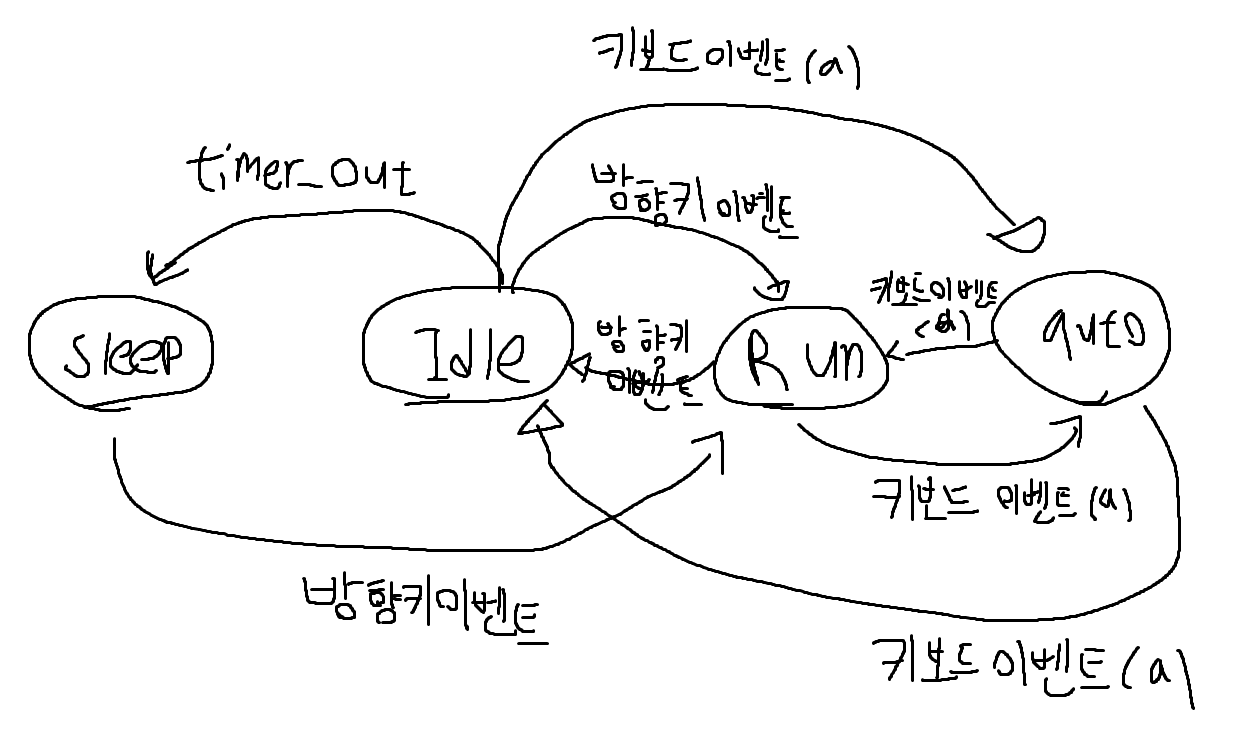 키보드이벤트(a)
timer_out
방향키이벤트
키보드이벤트
(a)
sleep
Idle
방향키
이벤트
Run
auto
키보드 이벤트(a)
방향키이벤트
키보드이벤트(a)